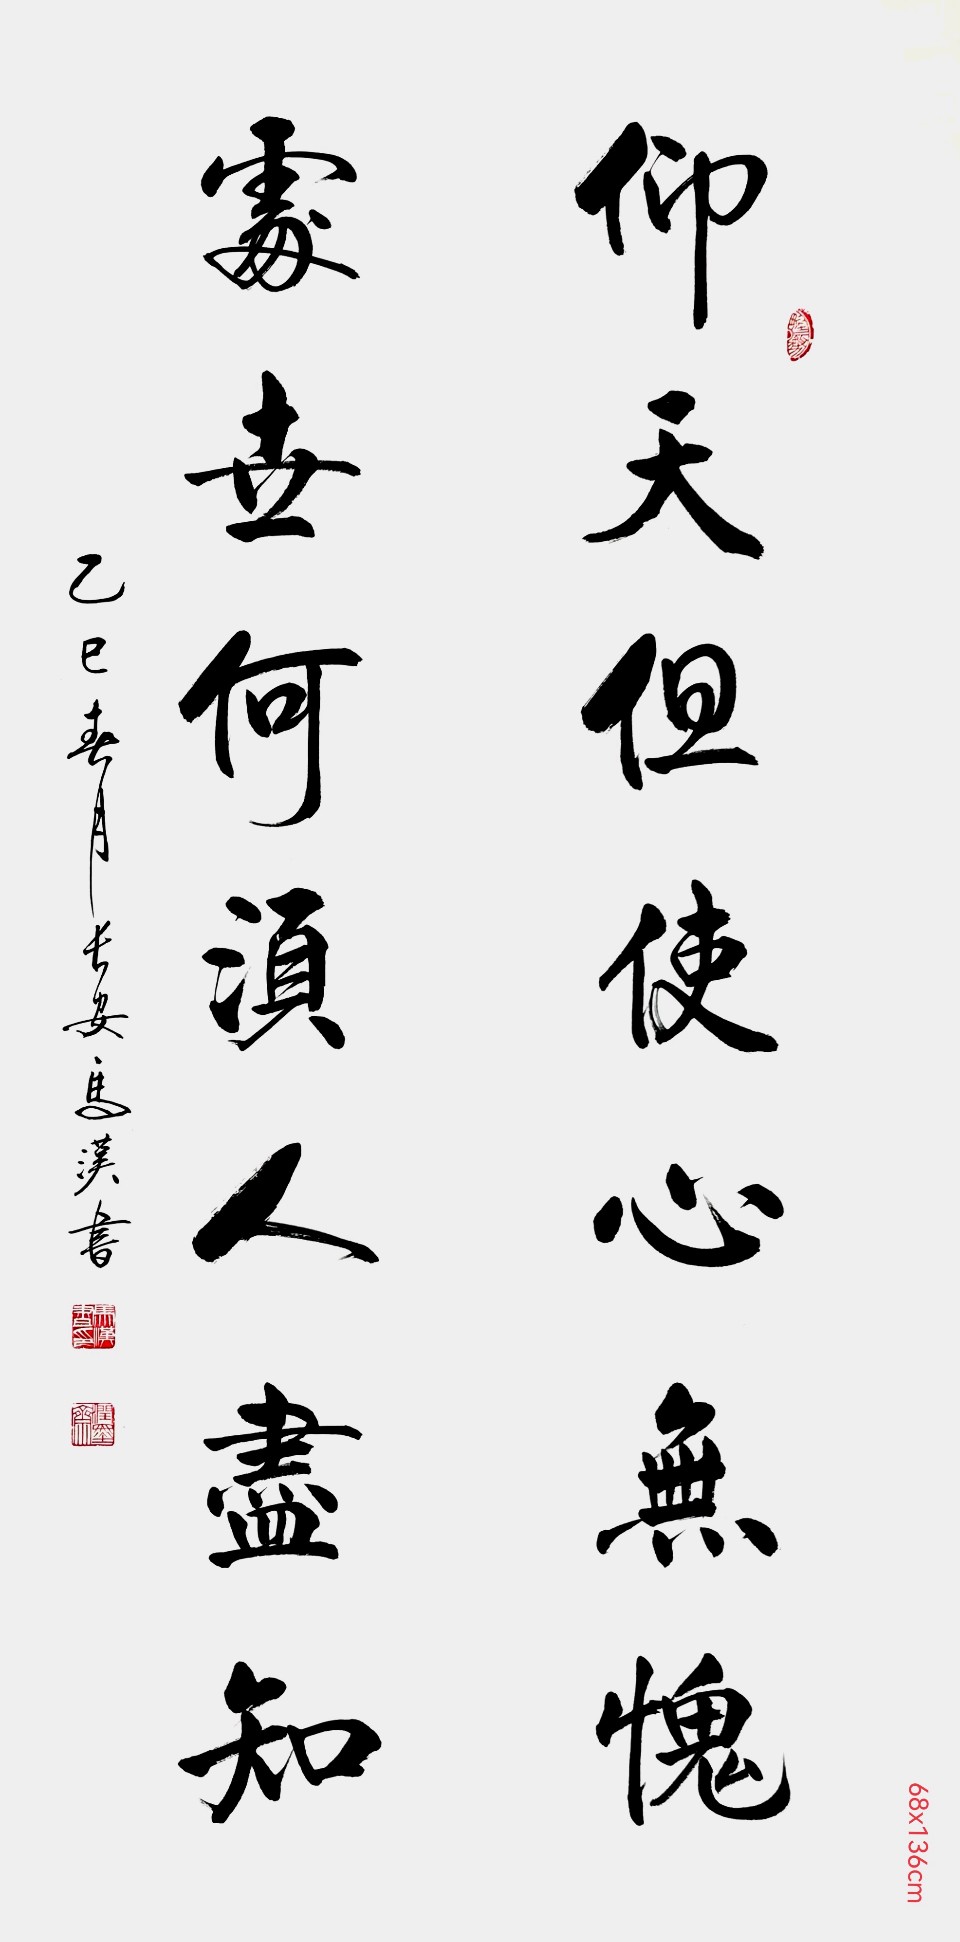 仰天但使心無愧
處世何須人盡知
乙巳春月長安馬漢書
68x136cm